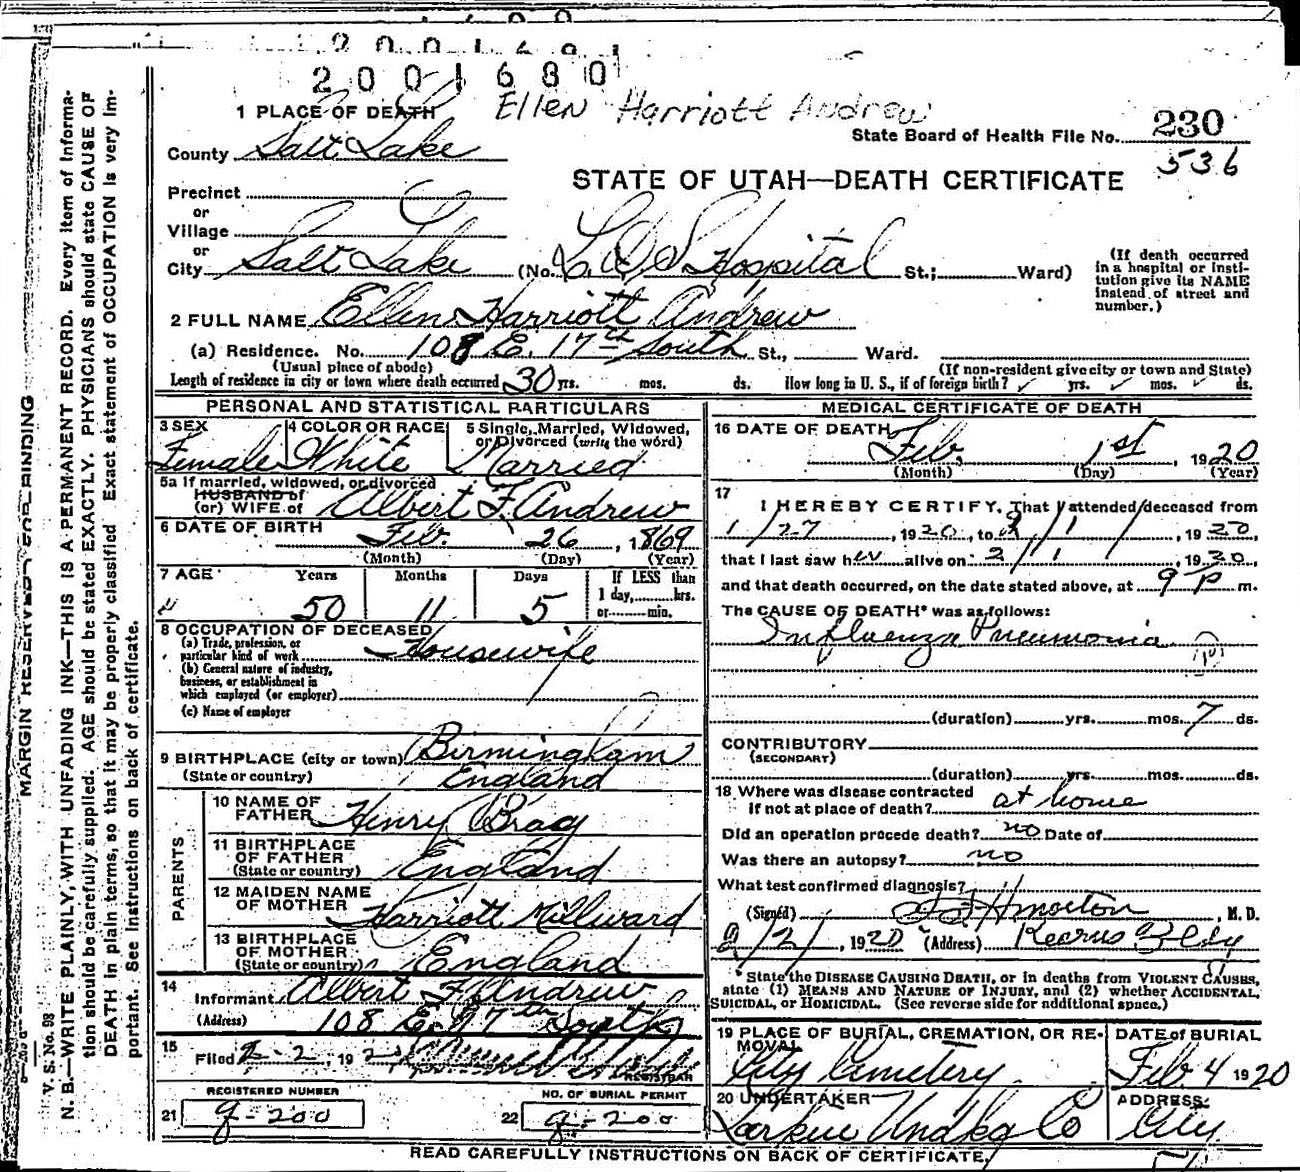 2001680
Ellen Harriott Andrew
1 PLACE OF DEATH
State Board of Health File No. 230
536
County Salt Lake
STATE OF UTAH—DEATH CERTIFICATE
Precinct
or
Village
or
City Salt Lake (No. L.D.S Hospital St.; Ward)
(If death occurred in a hospital or institution give its NAME instead of street and number.)
2 FULL NAME Ellen Harriott Andrew
(a) Residence. No. 108 E. 17th South St., Ward.
(Usual place of abode) (If non-resident give city or town and State)
Length of residence in city or town where death occurred 30 yrs. mos. ds. How long in U. S., if of foreign birth? yrs. mos. ds.
PERSONAL AND STATISTICAL PARTICULARS
3 SEX Female
4 COLOR OR RACE White
5 Single, Married, Widowed, or Divorced (write the word) Married
5a If married, widowed, or divorced
HUSBAND of
(or) WIFE of Albert F. Andrew
6 DATE OF BIRTH Feb. 26, 1869
(Month) (Day) (Year)
7 AGE Years Months Days If LESS than
50 11 5 1 day, hrs.
or min.
8 OCCUPATION OF DECEASED
(a) Trade, profession, or
particular kind of work Housewife
(b) General nature of industry,
business, or establishment in
which employed (or employer)
(c) Name of employer
9 BIRTHPLACE (city or town) Birmingham
(State or country) England
PARENTS
10 NAME OF FATHER Henry Bray
11 BIRTHPLACE OF FATHER
(State or country) England
12 MAIDEN NAME OF MOTHER Harriott Millward
13 BIRTHPLACE OF MOTHER
(State or country) England
14
Informant Albert F. Andrew
(Address) 108 E. 17th South
15
Filed 2-2, 192
REGISTRAR
REGISTERED NUMBER
21 g-200
NO. OF BURIAL PERMIT
22 g-200
MEDICAL CERTIFICATE OF DEATH
16 DATE OF DEATH
Feb. 1st, 1920
(Month) (Day) (Year)
17
I HEREBY CERTIFY, That I attended deceased from
1/27, 1920, to 2/1, 1920,
that I last saw her alive on 2/1, 1920,
and that death occurred, on the date stated above, at 9 P m.
The CAUSE OF DEATH* was as follows:
Influenza Pneumonia
(duration) yrs. mos. 7 ds.
CONTRIBUTORY
(SECONDARY)
(duration) yrs. mos. ds.
18 Where was disease contracted
if not at place of death? at home
Did an operation precede death? no Date of
Was there an autopsy? no
What test confirmed diagnosis?
(Signed) M. D.
2/2, 1920 (Address) Kearns Bldg
*State the DISEASE CAUSING DEATH, or in deaths from VIOLENT CAUSES,
state (1) MEANS AND NATURE OF INJURY, and (2) whether ACCIDENTAL,
SUICIDAL, or HOMICIDAL. (See reverse side for additional space.)
19 PLACE OF BURIAL, CREMATION, OR REMOVAL
City Cemetery
DATE of BURIAL
Feb. 4 1920
20 UNDERTAKER
Larkin Undkg Co
ADDRESS:
City
READ CAREFULLY INSTRUCTIONS ON BACK OF CERTIFICATE.
MARGIN RESERVED FOR BINDING
V. S. No. 98
N. B.—WRITE PLAINLY, WITH UNFADING INK—THIS IS A PERMANENT RECORD. Every item of informa-
tion should be carefully supplied. AGE should be stated EXACTLY. PHYSICIANS should state CAUSE OF
DEATH in plain terms, so that it may be properly classified. Exact statement of OCCUPATION is very im-
portant. See instructions on back of certificate.